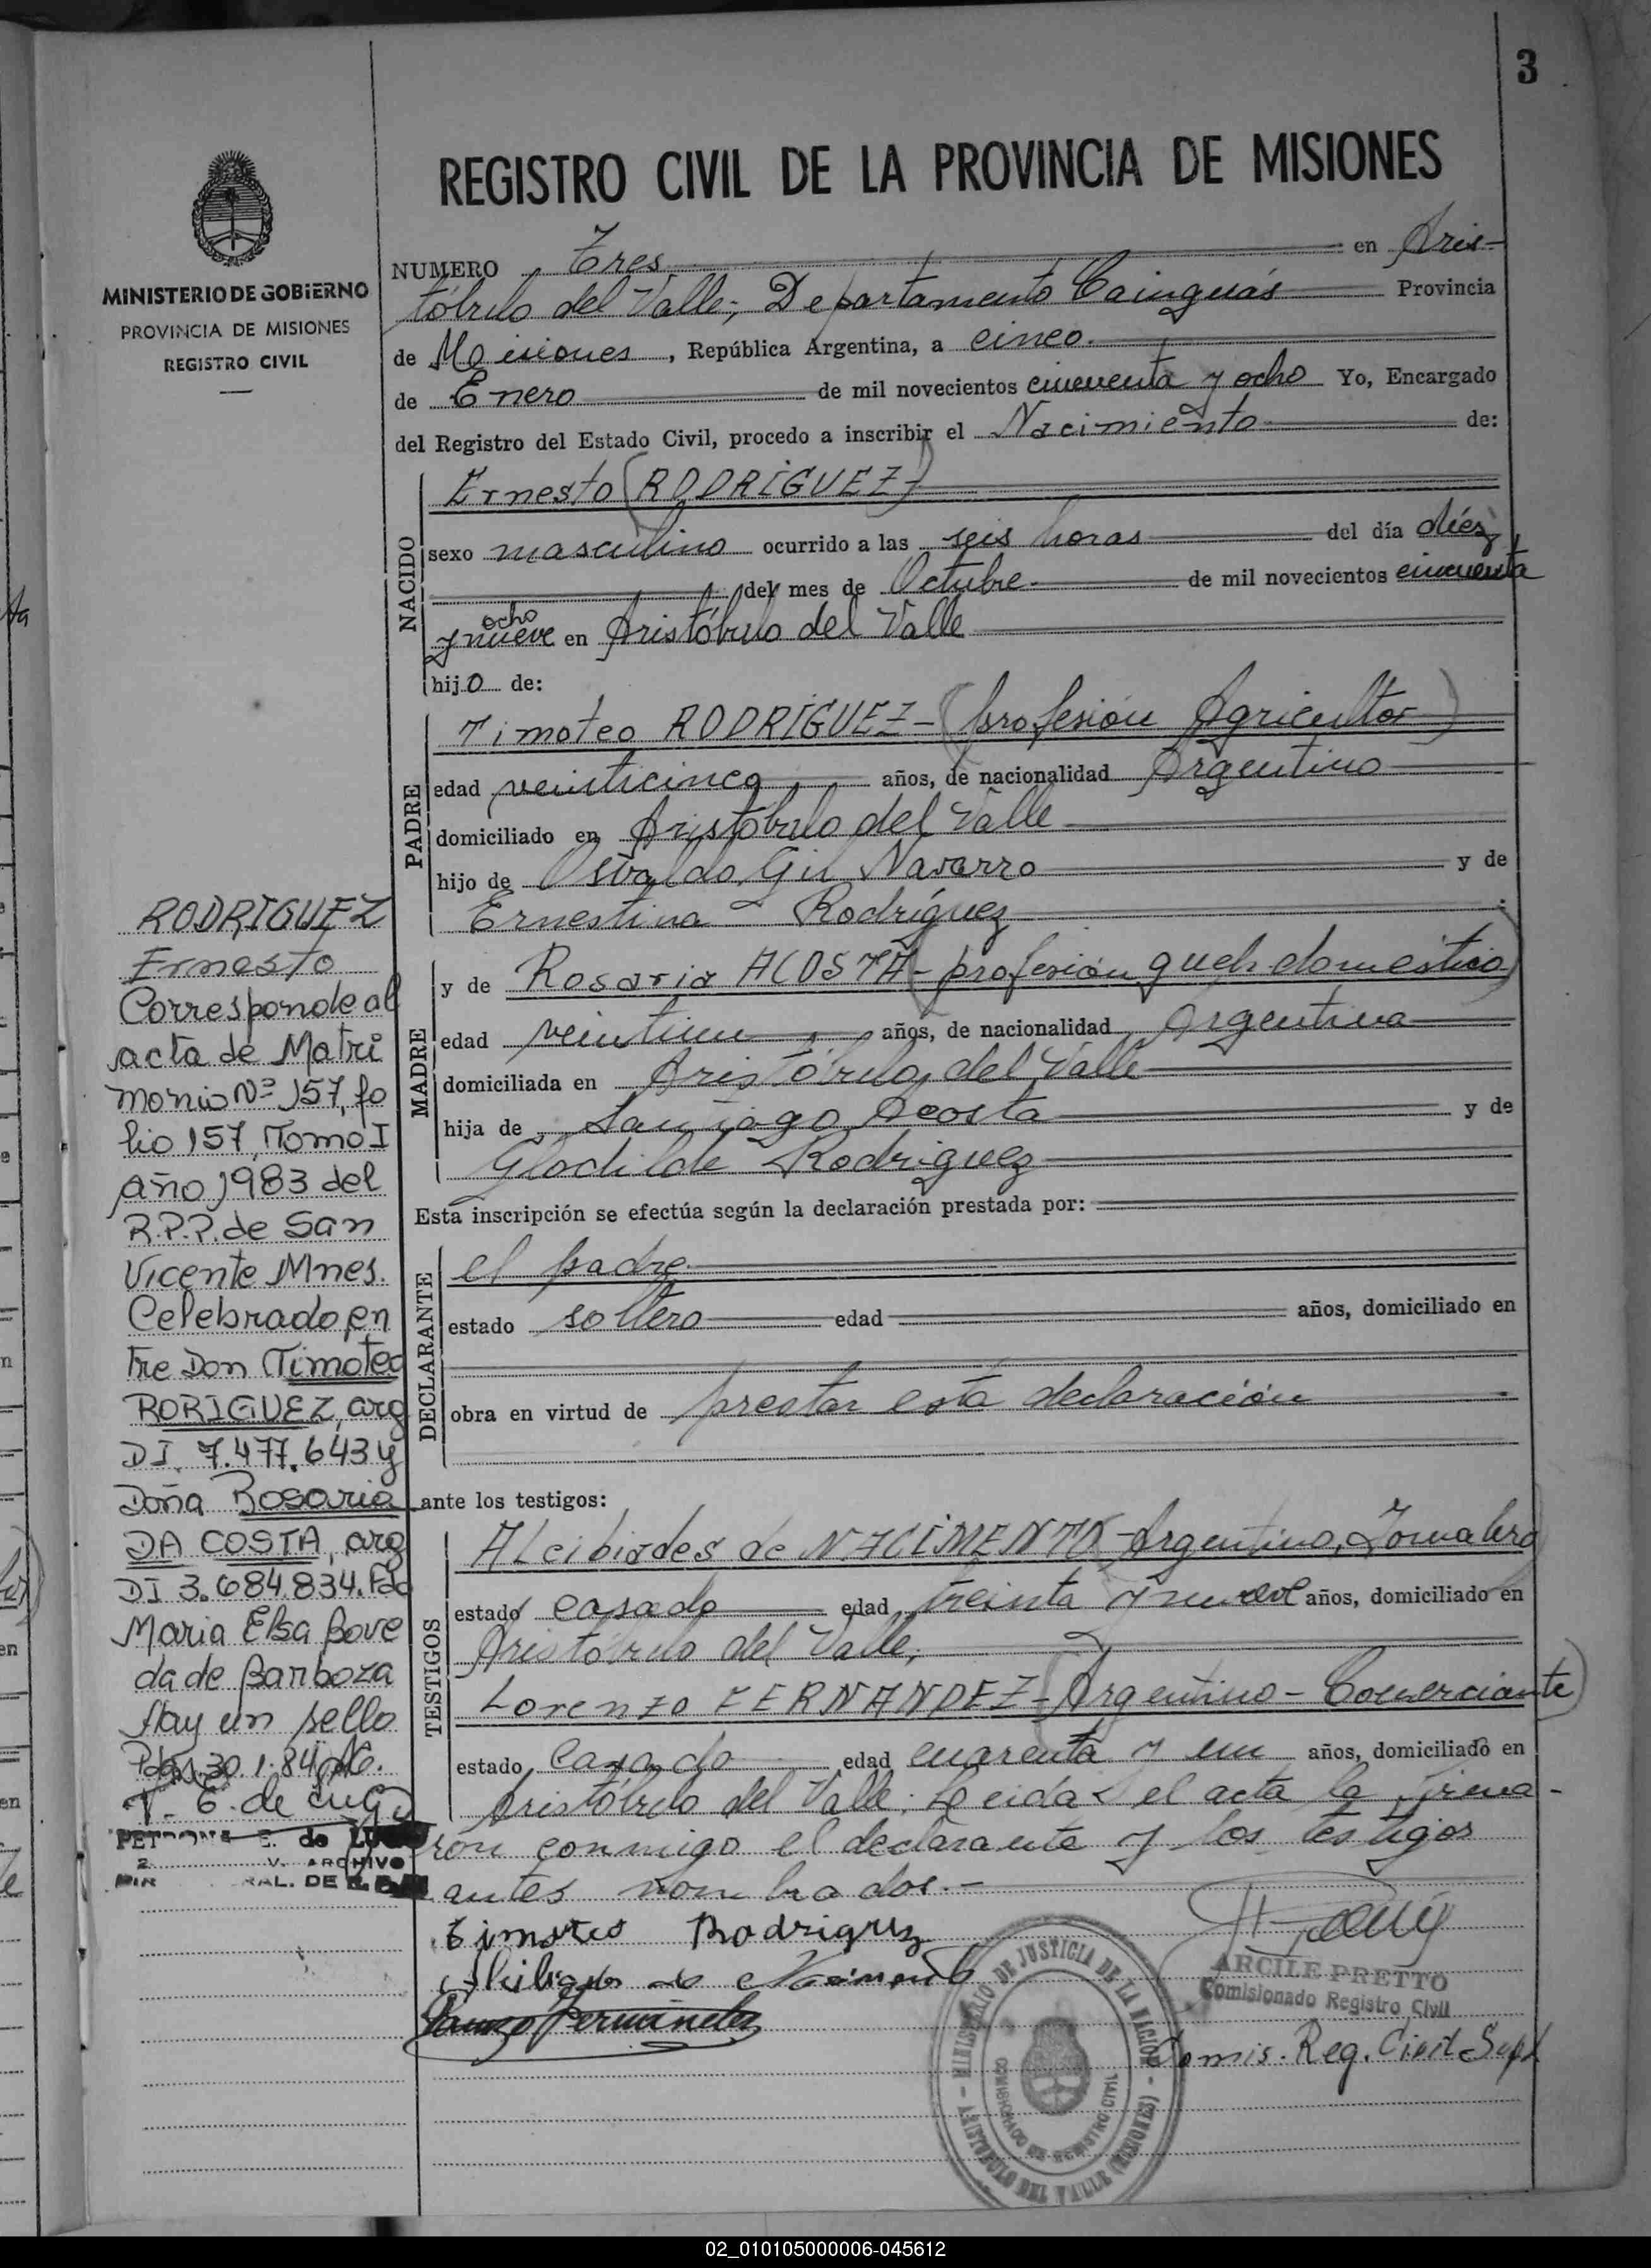 3
REGISTRO CIVIL DE LA PROVINCIA DE MISIONES
MINISTERIO DE GOBIERNO
PROVINCIA DE MISIONES
REGISTRO CIVIL
NUMERO Tres en Aris-
tóbulo del Valle; Departamento Cainguás Provincia
de Misiones, República Argentina, a cinco.
de Enero de mil novecientos cincuenta y ocho Yo, Encargado
del Registro del Estado Civil, procedo a inscribir el Nacimiento de:
NACIDO
Ernesto (RODRÍGUEZ)
sexo masculino ocurrido a las seis horas del día diéz
del mes de Octubre de mil novecientos cincuenta
ocho
y nueve en Aristóbulo del Valle
hijo de:
PADRE
Timoteo RODRÍGUEZ-(profesión Agricultor)
edad veinticinco años, de nacionalidad Argentino
domiciliado en Aristóbulo del Valle
hijo de Osvaldo Gil Navarro y de
Ernestina Rodríguez
MADRE
y de Rosaria ACOSTA-(profesión queh. domestico)
edad veintiun años, de nacionalidad Argentina
domiciliada en Aristóbulo del Valle
hija de Santiago Acosta y de
Glodilde Rodriguez
Esta inscripción se efectúa según la declaración prestada por:
DECLARANTE
el padre
estado soltero edad años, domiciliado en
obra en virtud de prestar esta declaración
ante los testigos:
TESTIGOS
ALcibiades de NACIMENTO (Argentino, Jornalero)
estado casado edad treinta y nueve años, domiciliado en
Aristóbulo del Valle;
Lorenzo FERNANDEZ-(Argentino-Comerciante)
estado Casado edad cuarenta y un años, domiciliado en
Aristóbulo del Valle. Leida el acta la firma-
rón conmigo el declarante y los testigos
antes nombrados.-
Timoteo Rodriguz
de
Fernández
ARCILE PRETTO
Comisionado Registro Civil
Comis. Reg. Civil Supl
MINISTERIO DE JUSTICIA DE LA NACION - ARISTOBULO DEL VALLE (MISIONES)
COMISIONADO DE REGISTRO CIVIL
RODRIGUEZ
Ernesto
Corresponde al
acta de Matri
monio Nº 157, fo
lio 157, Tomo I
año 1983 del
R.P.P. de San
Vicente Mnes.
Celebrado en
tre Don Timoteo
RORIGUEZ, arg
DI. 7.477.643 y
Doña Rosaria
DA COSTA, arg
DI 3.684.834. Fdo
Maria Elsa Bove
da de Barboza
Hay un sello
Pdas. 30.1.84
E. de Lugo
PETRONA E. de LUGO
V. ARCHIVO
RAL. DE
02_010105000006-045612